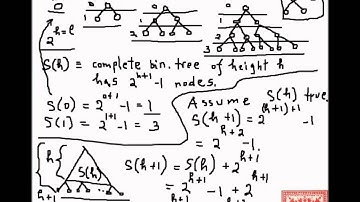 0
1
0
1
2
0
1
2
3
2^h = l
S(h) ≡ complete bin. tree of height h
has 2^{h+1} -1 nodes.
S(0) = 2^{0+1} -1 = 1
S(1) = 2^{1+1} -1 = 3
Assume S(h) true.
S(h+1) = 2^{(h+1)+1} -1
= 2^{h+2} -1.
h
S(h)
h+1
S(h+1) = S(h) + 2^{h+1}
= 2^{h+1} -1 + 2^{h+1}